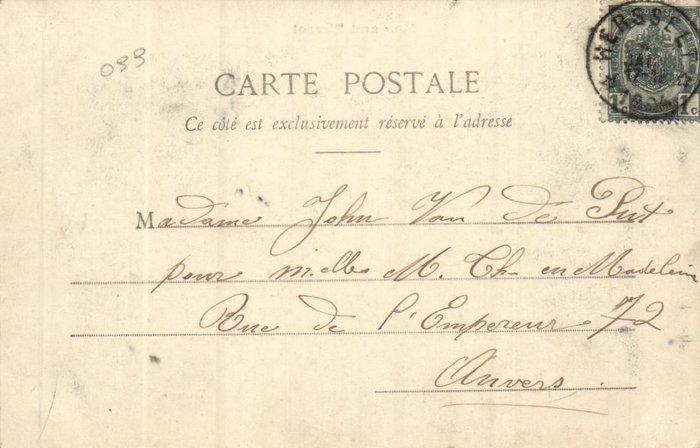 099
HERSSELT
1c 1c
CARTE POSTALE
Ce côté est exclusivement réservé à l'adresse
Madame John Van de Put
pour m.elles M. Th. en Madeleine
Rue de l'Empereur 72
Anvers.